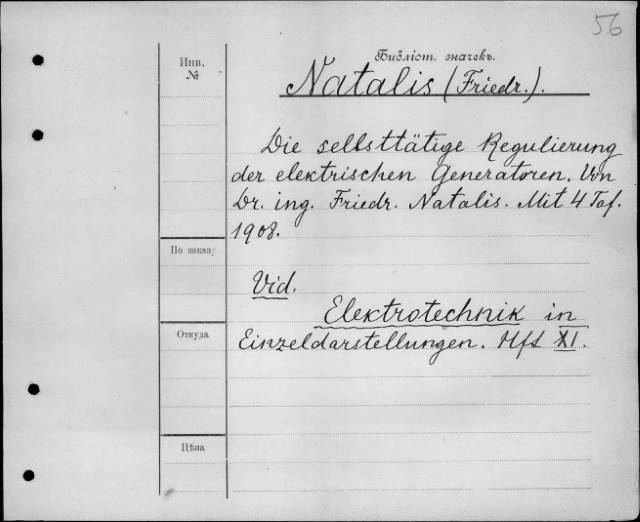 56
Библіот. значекъ.
Инв.
№
Natalis (Friedr.).
Die selbsttätige Regulierung
der elektrischen Generatoren. Von
Dr. ing. Friedr. Natalis. Mit 4 Taf.
1908.
По заказу
Vid.
Elektrotechnik in
Откуда
Einzeldarstellungen. Hft XI.
Цѣна